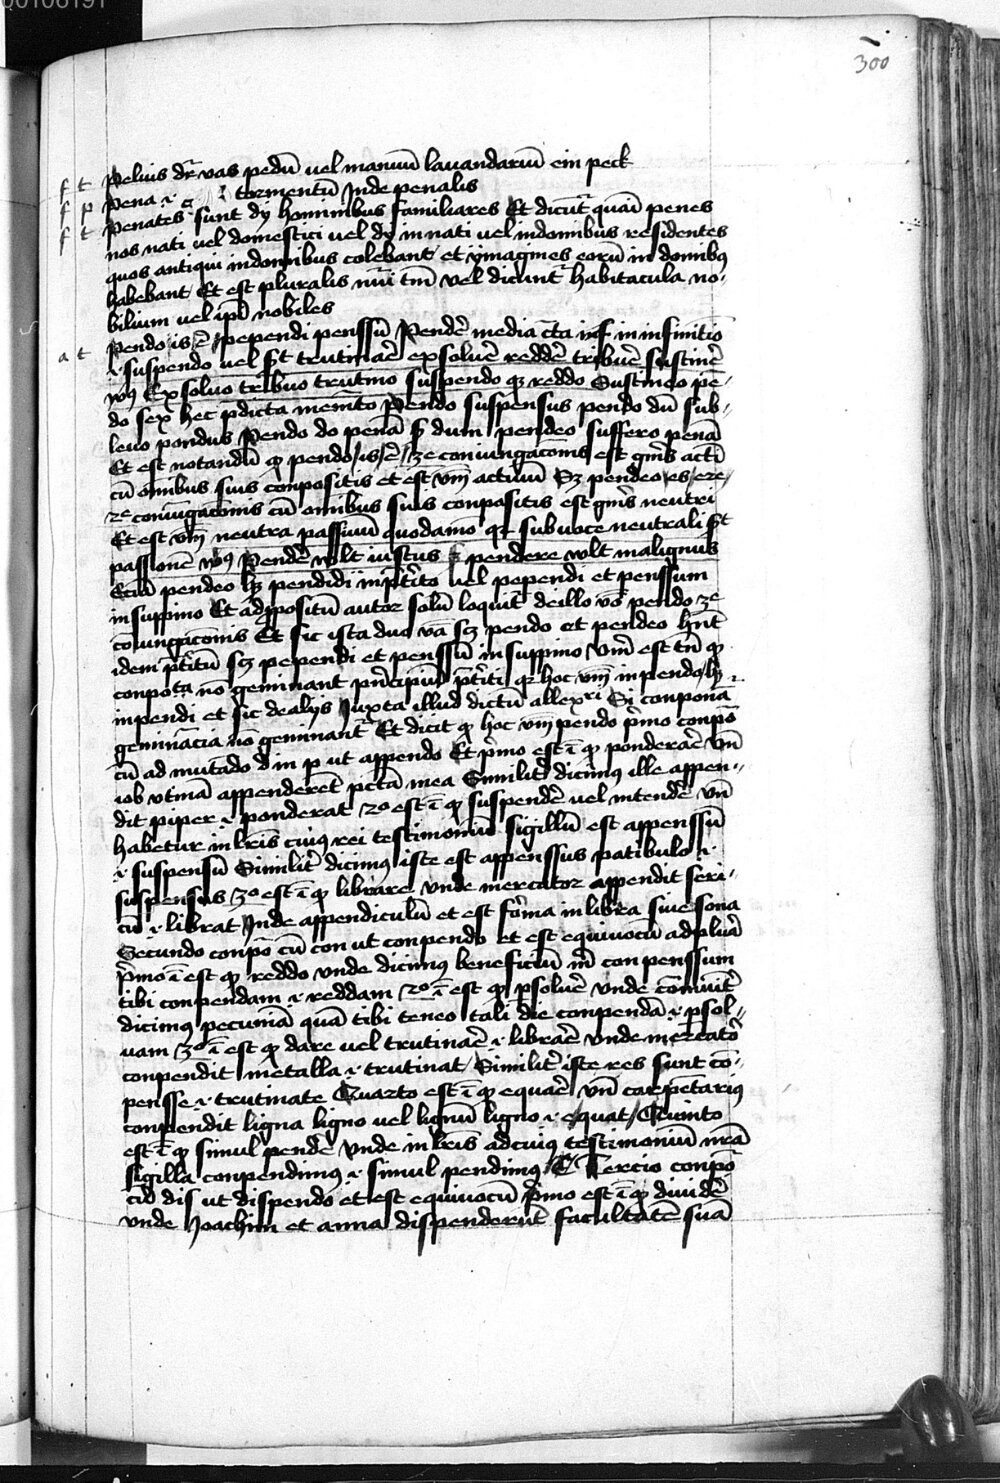 00106191
300
f t Peluis dr̄ vas pedū uel manuū lauandariū ein peck
f p Pena .i. tormentū Inde penalis
f t Penates sunt dij hominibus familiares Et dicūt quasi penes
nos nati uel domestici uel dij innati uel indomibus residentes
quos antiqui indomibus colebant et ymagines eorū in domibus
habebant Et est pluralis nūi tm̄ vel dicunt habitacula no-
bilium uel ipī nobiles
a t Pendo is ē pependi penssū Pendē media inf in infinitiō
.i. suspendo uel trutinaē exsoluē reddē tribuē sustinē
Exsoluo tribuo trutino suspendo reddo Sustineo pē-
do sex hec p̄dicta memēto Pendo suspensus pendo dū sub-
leuo pondus Pendo do penā dum pendeo suffero penā
Et est notandū pendo is ē 3e coniungacōnis est gn̄is actī
cū omībus suis conpositis et est vm̄ actiuū Sz pendeo es ere
2e coniūgacōnis cū omībus suis conpositis est gn̄is neutri
Et est vm̄ neutra passiuū quodamō qr subuoce neutrali
passionē Pendē wlt iustus pendere wlt malignus
Eciā pendeo hz pendidi inp̄tito uel pependi et penssum
insuppino Et adpositū autor solū loquit deillo pendo 3e
coniungacōnis Et sic ista duo pendo et pendeo hn̄t
idem p̄titū pependi et penssū insuppino Vm̄ est tn̄
conpōta nō geminant qr hoc vm̄ inpendo hz
inpendi et sic dealijs Juxta illud dictū allexri Si conponā
geminācia nō geminant Et dicit hoc vm̄ pendo p̄mo conpō
cū ad mutādo d in p ut appendo Et p̄mo est ponderaē
iob vtinā appenderēt pctā mea Similit̄ dicimus ille appen-
dit piper .i. ponderat 2o est suspendē uel intendē
habetur in lrīs cuius rei testimoniū sigillū est appenssū
.i. suspensū Similit̄ dicimus iste est appenssus patibulo .i.
suspensus 3o est librare vnde mercator appendit seri-
cū .i. librat Inde appendiculū et est forma in libra siue sona
Secundo conpō cū con ut conpendo et est equiuocū adplura
p̄mo est reddo vnde dicimus beneficiū conpenssum
tibi conpendam .i. reddam 2o est psoluē vnde cōmuīt
dicimus pecuniā quā tibi teneo tali die conpendā .i. psol-
uam 3o est dare uel trutinaē .i. libraē vnde mercator
conpendit metalla .i. trutinat Similit̄ iste res sunt cō-
pensse .i. trutinate Quarto est equaē carpetarius
conpendit ligna ligno uel lignū ligno .i. equat Quinto
est simul pendē vnde in lrīs adcuius testimoniū nrā
sigilla conpendimus .i. simul pendimus Tercio conpō
cū dis ut dispendo et est equiuocū p̄mo est diuidē
vnde Joachim et anna dispenderūt facultatē suā